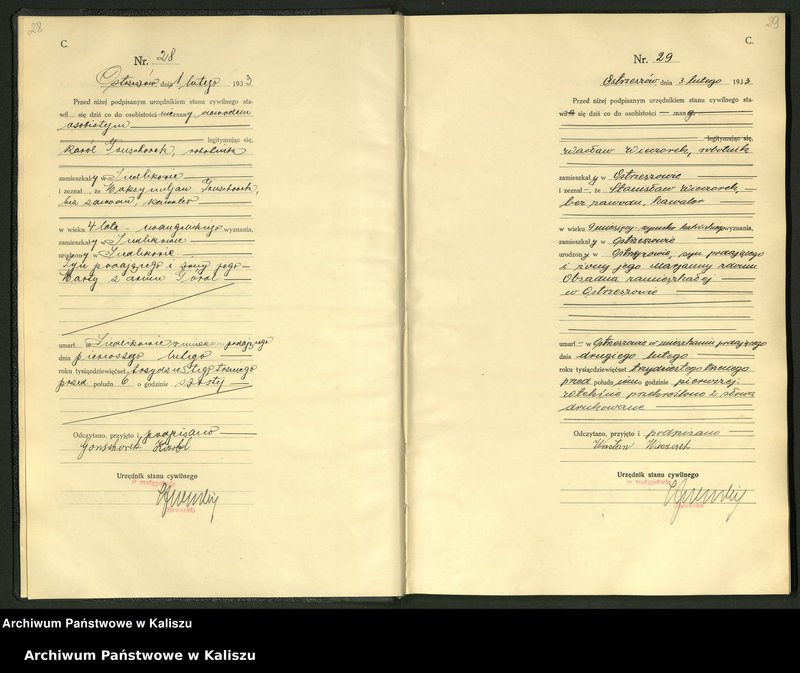 28
C.
Nr. 28
Ostrzeszów dnia 1 lutego 1933
Przed niżej podpisanym urzędnikiem stanu cywilnego sta-
wił się dziś co do osobistości znany, dowodem
osobistym
legitymując się,
Karol Gonschorek, robotnik
zamieszkały w
i zeznał, że Maksymiljan Gonschorek,
bez zawodu, kawaler
w wieku 4 lata – ewangelickiego wyznania,
zamieszkały w
urodzony w
syn podającego i żony jego
Marty z domu
umarł w mieszkaniu podającego
dnia pierwszego lutego
roku tysiącdziewięćset trzydziestego trzeciego
przed połudn 6 o godzinie szóstej
Odczytano, przyjęto i podpisano
Gonschorek Karol
Urzędnik stanu cywilnego
w zastępstwie
29
C.
Nr. 29
Ostrzeszów dnia 3 lutego 1933
Przed niżej podpisanym urzędnikiem stanu cywilnego sta-
wił się dziś co do osobistości – znany
legitymując się,
Wacław Wieczorek, robotnik
zamieszkały w Ostrzeszowie
i zeznał –, że Stanisław Wieczorek,
bez zawodu, kawaler
w wieku 9 miesięcy – rzymsko katolickiego wyznania,
zamieszkały w Ostrzeszowie
urodzony w Ostrzeszowie, syn podającego
i żony jego Marjanny z domu
Obsadna zamieszkałej
w Ostrzeszowie
umarł – w Ostrzeszowie w mieszkaniu podającego
dnia drugiego lutego
roku tysiącdziewięćset trzydziestego trzeciego
przed połudn o godzinie pierwszej.
przekreślono 2 słowa
drukowane
Odczytano, przyjęto i podpisano
Wacław Wieczorek
Urzędnik stanu cywilnego
w zastępstwie
Archiwum Państwowe w Kaliszu
Archiwum Państwowe w Kaliszu